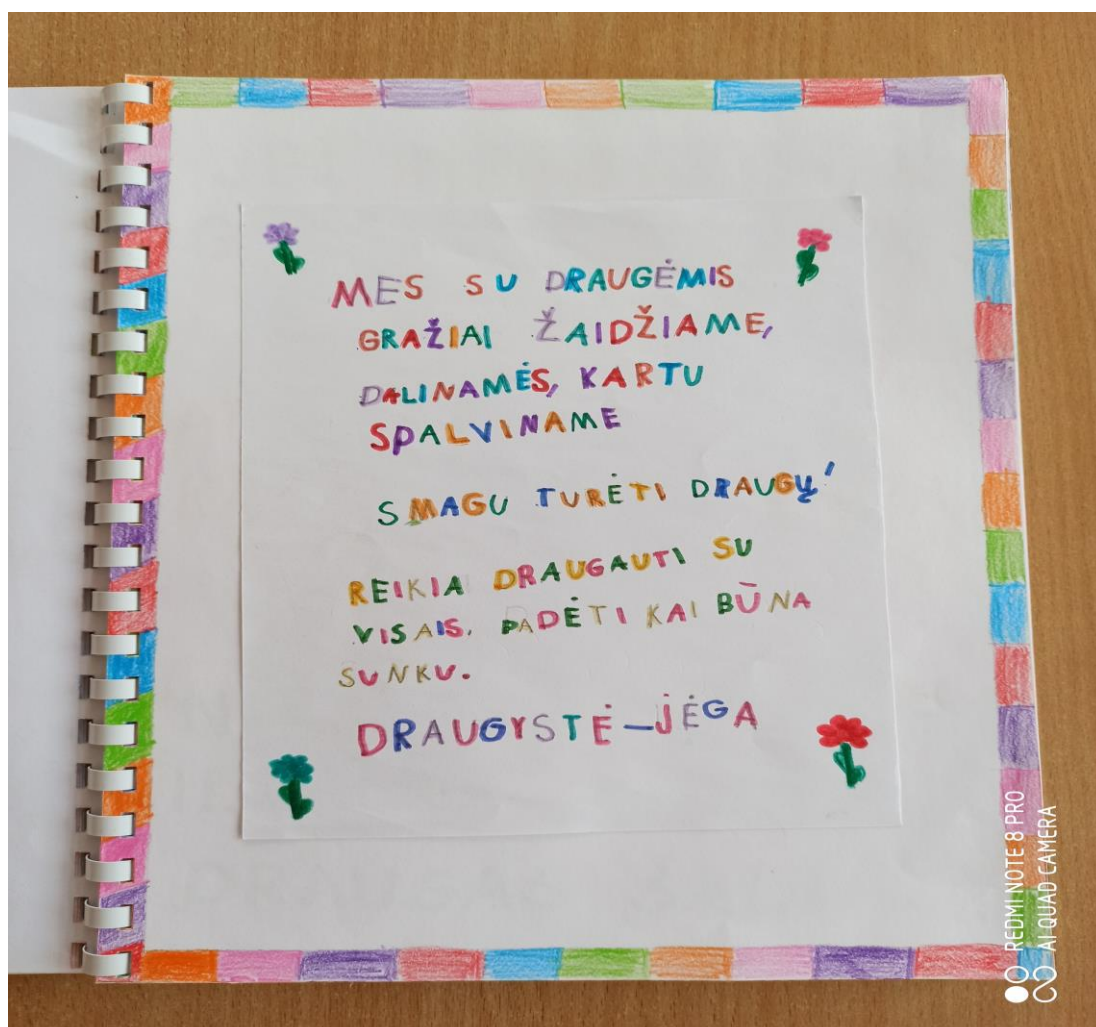 MES SU DRAUGĖMIS
GRAŽIAI ŽAIDŽIAME,
DALINAMĖS, KARTU
SPALVINAME
SMAGU TURĖTI DRAUGŲ!
REIKIA DRAUGAUTI SU
VISAIS. PADĖTI KAI BŪNA
SUNKU.
DRAUGYSTĖ–JĖGA
REDMI NOTE 8 PRO
AI QUAD CAMERA